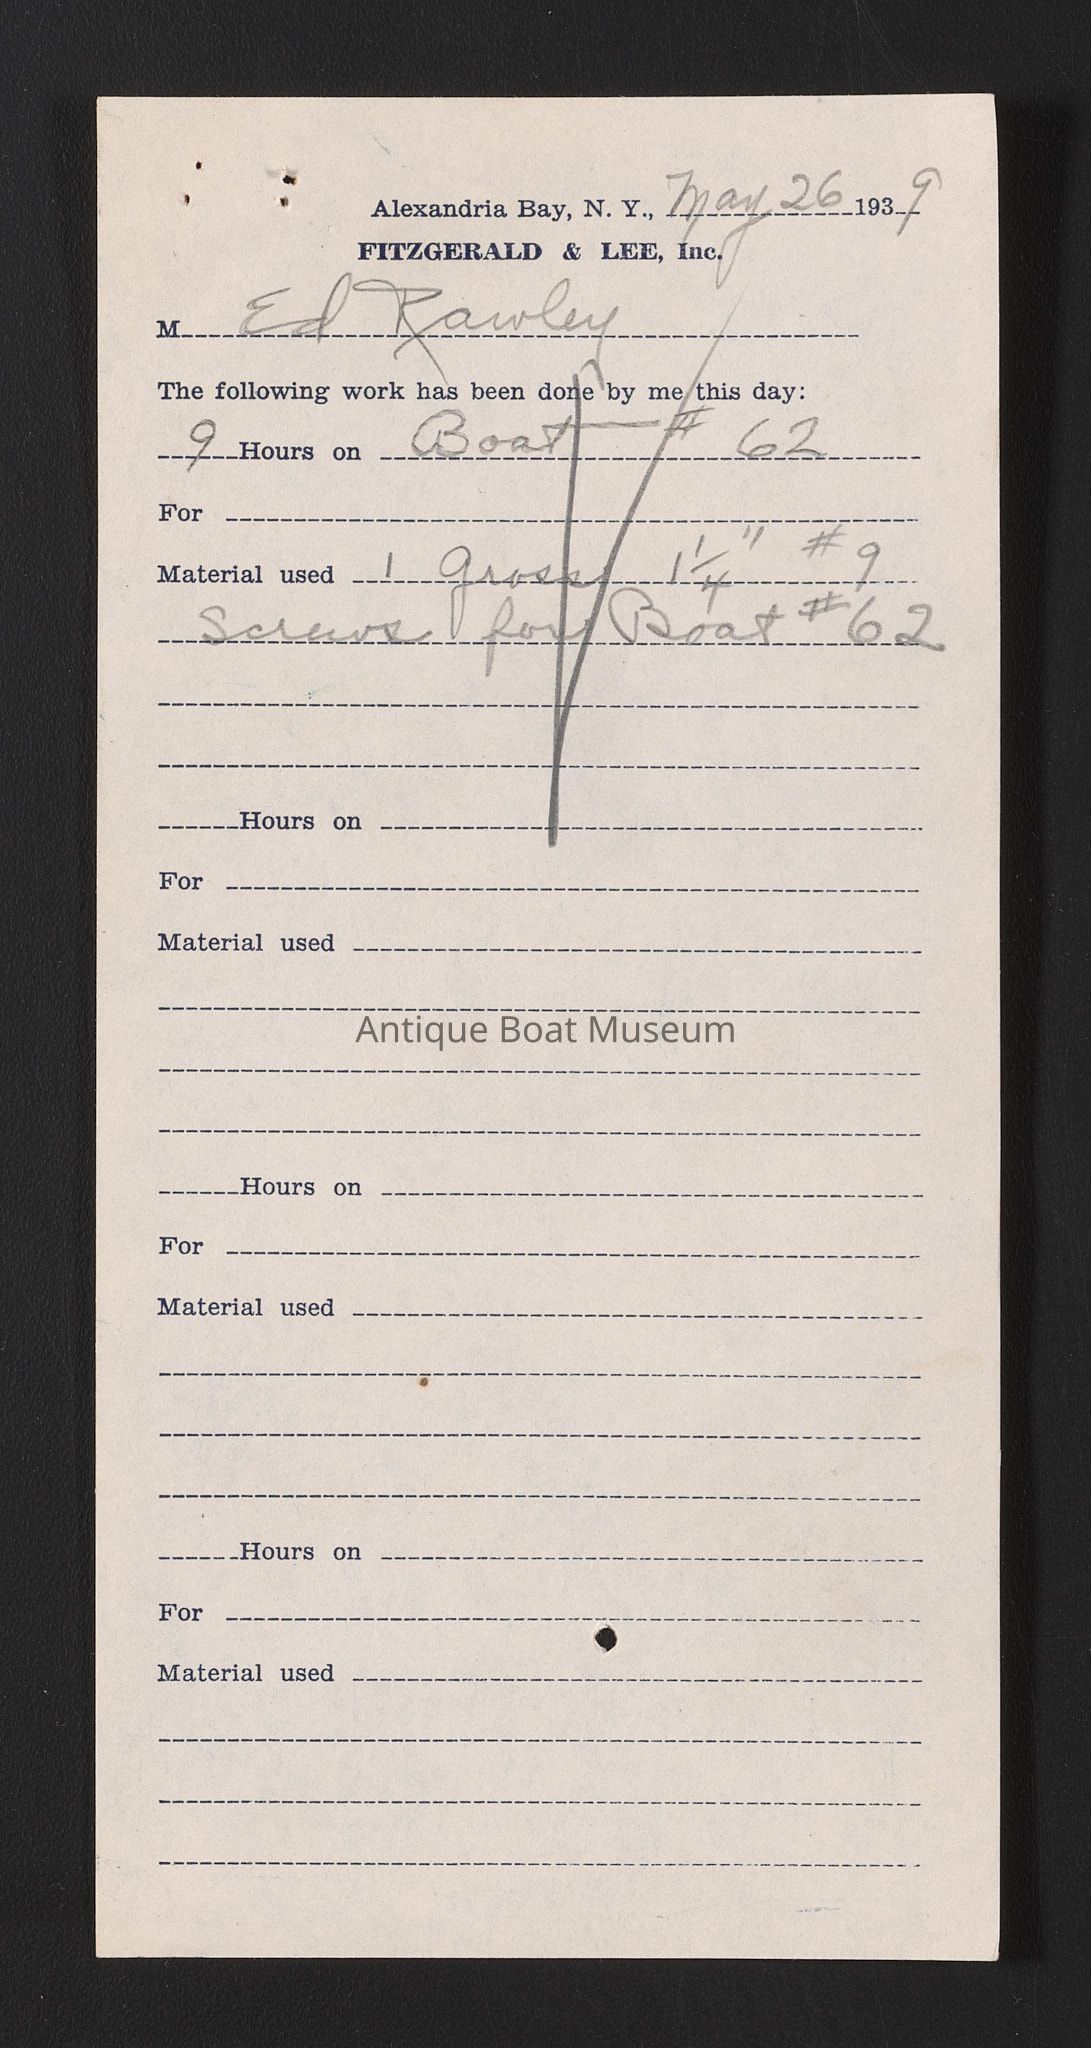 Alexandria Bay, N. Y., May 26 1939
FITZGERALD & LEE, Inc.
M Ed Rawley
The following work has been done by me this day:
9 Hours on Boat — # 62
For
Material used 1 Gross 1 1/4" #9
Screws for Boat #62
Hours on
For
Material used
Antique Boat Museum
Hours on
For
Material used
Hours on
For
Material used